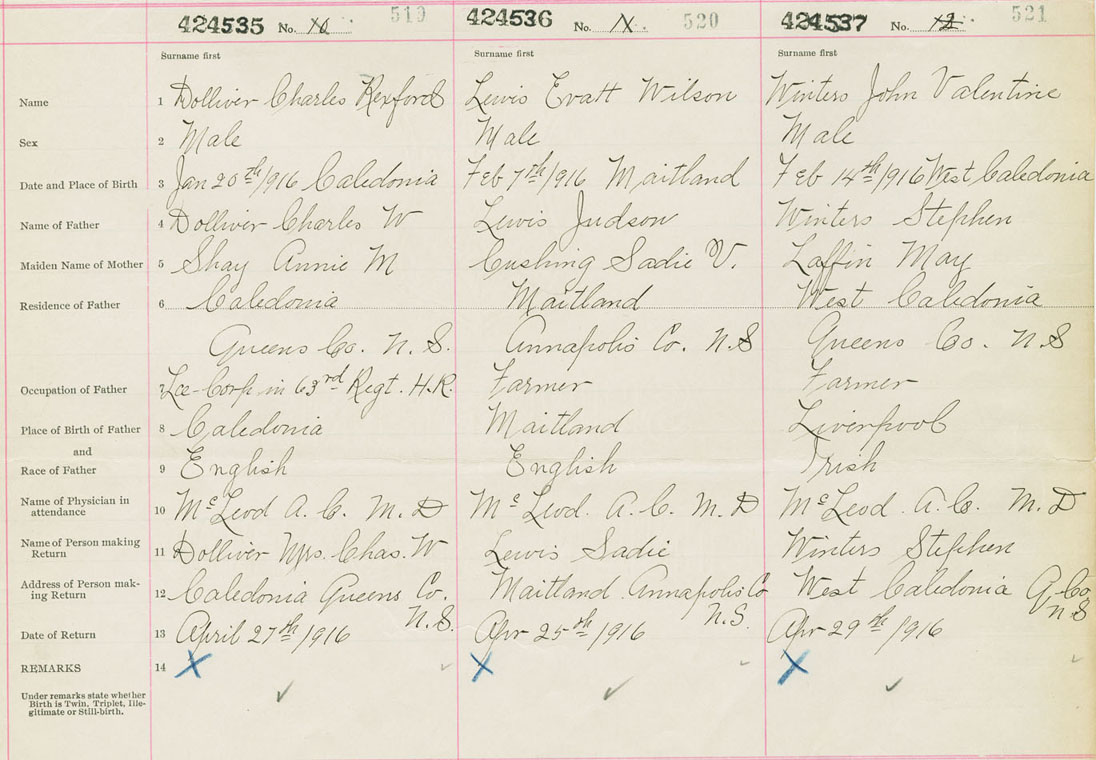 424535 No. 10 519 424536 No. 11 520 424537 No. 12 521
Surname first Surname first Surname first
Name 1 Dolliver Charles Rexford Lewis Evatt Wilson Winters John Valentine
Sex 2 Male Male Male
Date and Place of Birth 3 Jan 20th/916 Caledonia Feb 7th/916 Maitland Feb 14th/916 West Caledonia
Name of Father 4 Dolliver Charles W Lewis Judson Winters Stephen
Maiden Name of Mother 5 Shay Annie M Cushing Sadie V. Laffin May
Residence of Father 6 Caledonia Maitland West Caledonia
Queens Co. N.S. Annapolis Co. N.S Queens Co. N.S
Occupation of Father 7 Lce-Corp in 63rd Regt. H.R. Farmer Farmer
Place of Birth of Father 8 Caledonia Maitland Liverpool
and
Race of Father 9 English English Irish
Name of Physician in
attendance 10 McLeod A. C. M. D McLeod. A. C. M. D McLeod. A. C. M. D
Name of Person making
Return 11 Dolliver Mrs. Chas. W Lewis Sadie Winters Stephen
Address of Person mak-
ing Return 12 Caledonia Queens Co. Maitland Annapolis Co West Caledonia Q. Co.
N.S. N.S. N.S
Date of Return 13 April 27th/916 Apr 25th/916 Apr 29th/916
REMARKS 14 X X X
Under remarks state whether
Birth is Twin, Triplet, Ille-
gitimate or Still-birth.